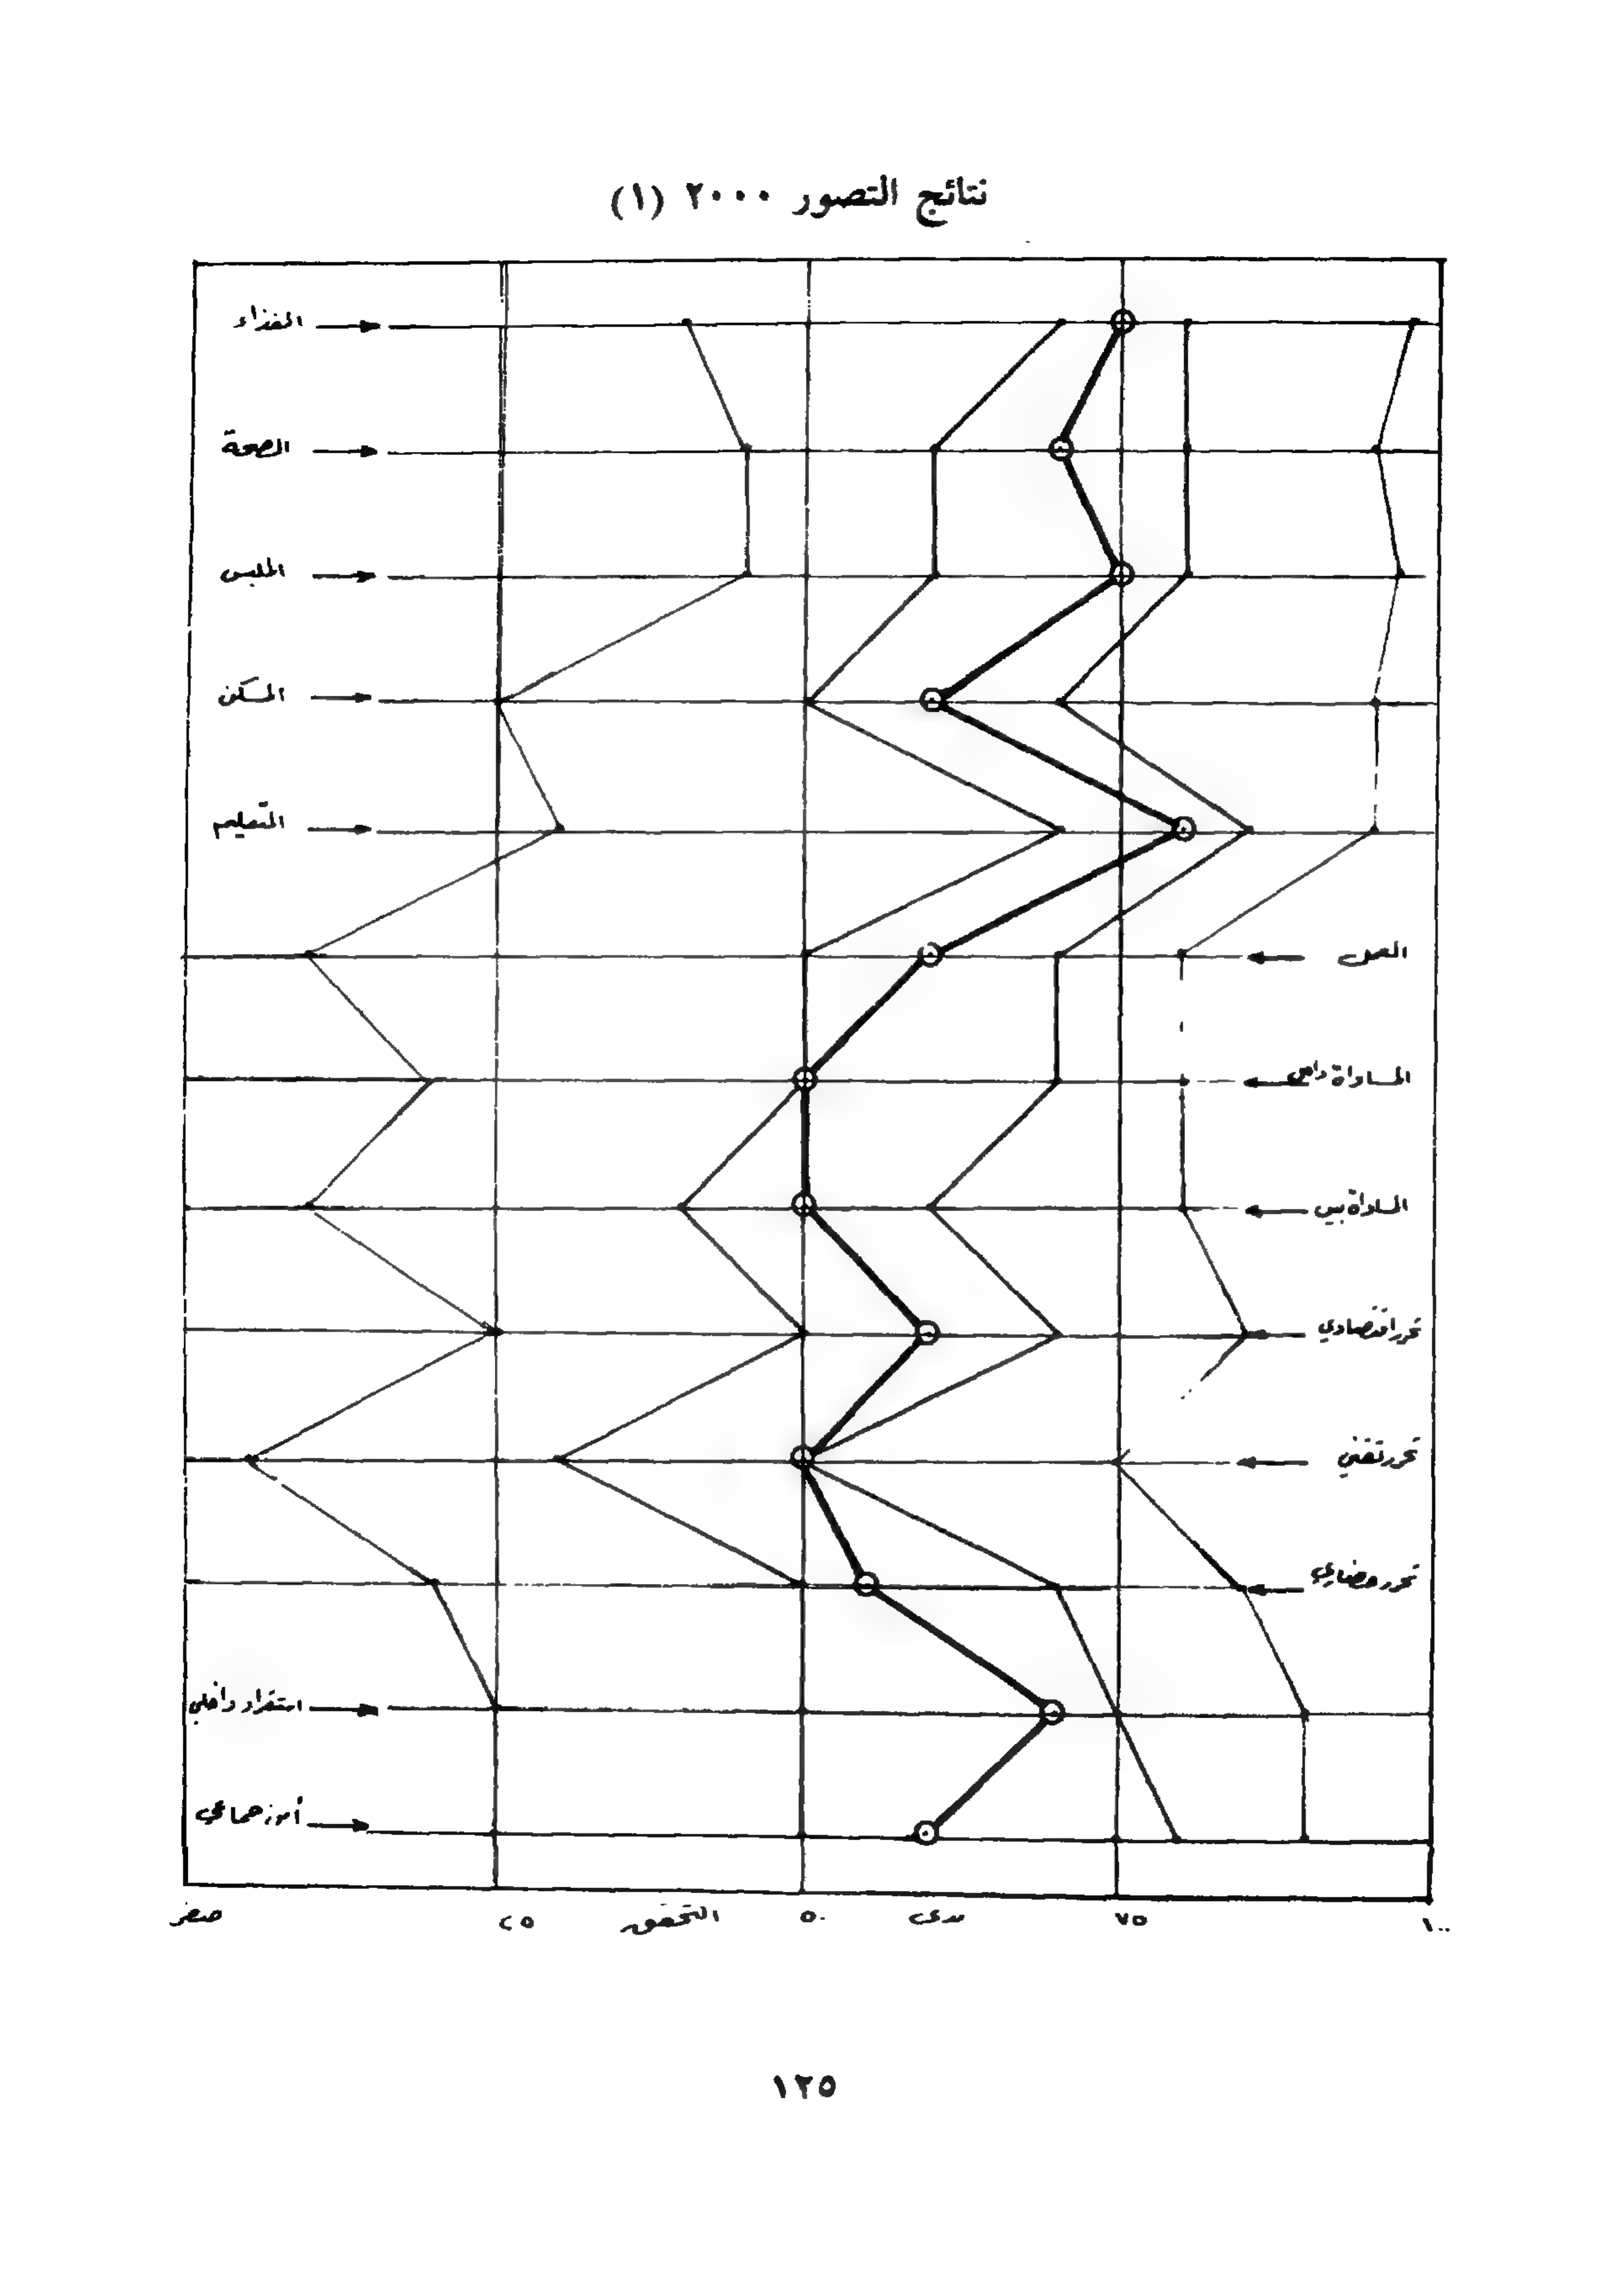 نتائج التصور ٢٠٠٠ (١)
الغذاء
الصحة
الملبس
المسكن
التعليم
العمل
المساواة داخل
المساواة بين
تحرر اقتصادي
تحرر تقني
تحرر حضاري
استقرار داخلي
أمن جماعي
صفر ٢٥ التحقق ٥٠ مدى ٧٥ ١٠٠
١٢٥